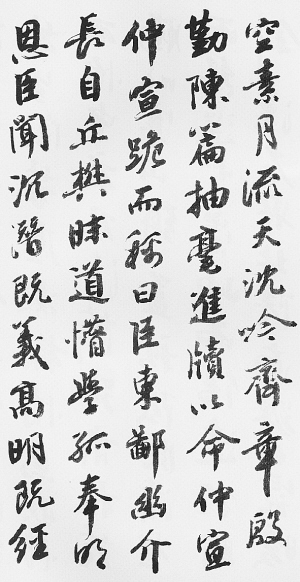 空素月流天沈吟齊章殷
勤陳篇抽毫進牘以命仲宣
仲宣跪而稱曰臣東鄙幽介
長自丘樊昧道懵學孤奉明
恩臣聞沉潛既義高明既經